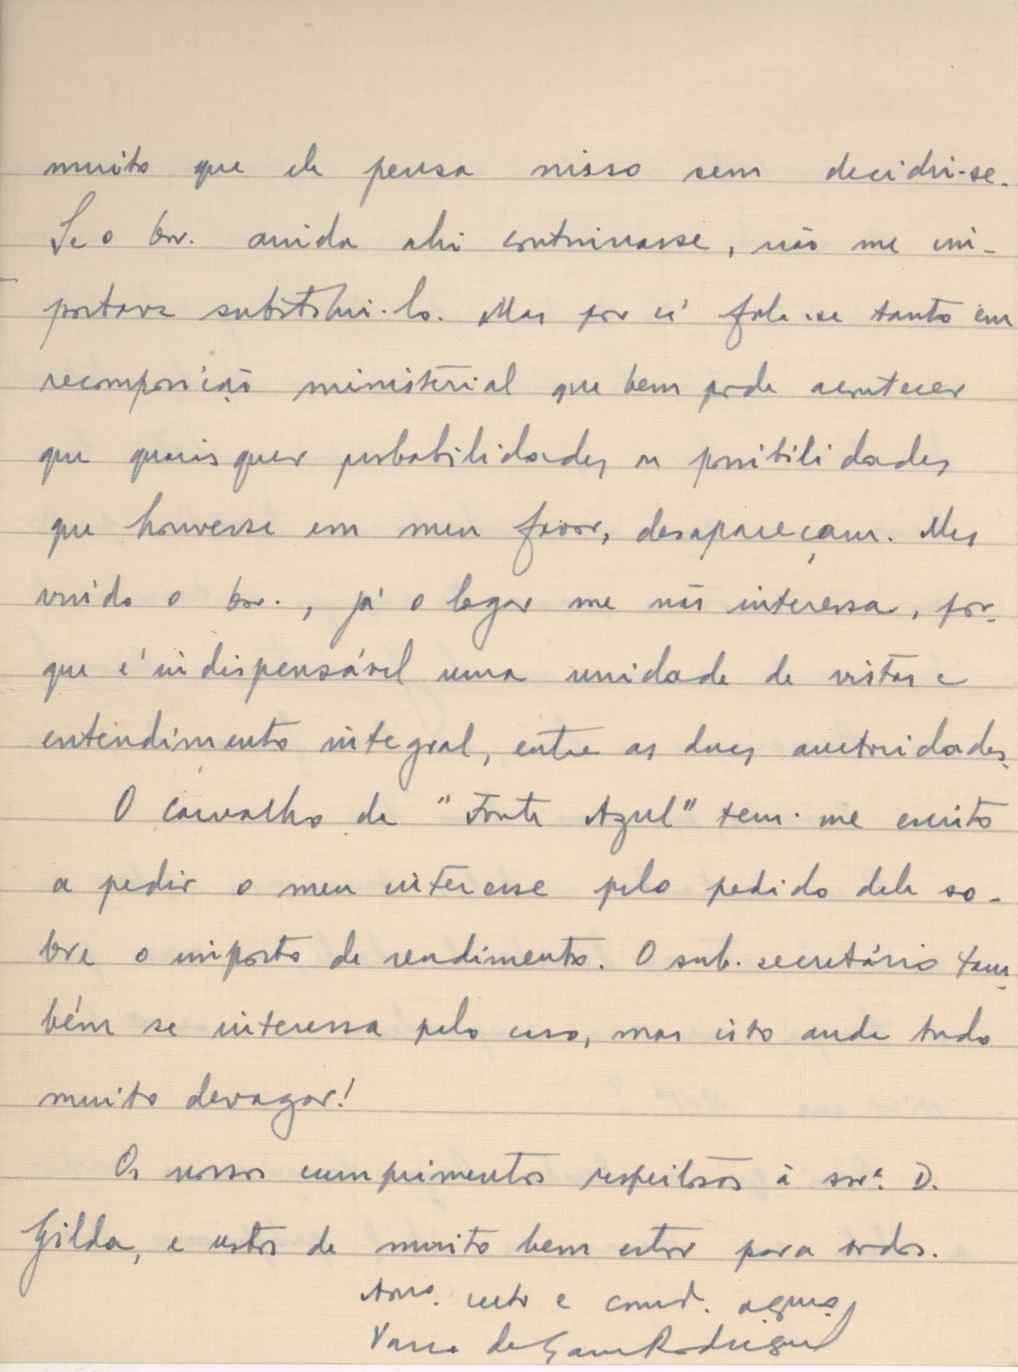 muito que ele pensa nisso sem decidir-se.
Se o Gov. ainda ahi continuasse, não me im-
portava substitui-lo. Mas por cá fala-se tanto em
recomposição ministerial que bem pode acontecer
que quaisquer probabilidades ou possibilidades
que houvesse em meu favor, desapareçam. Mas
vindo o Gov., já o logar me não interessa, por-
que é indispensável uma unidade de vistas e
entendimento integral, entre as duas auctoridades.
O Carvalho da "Fonte Azul" tem-me escrito
a pedir o meu interesse pelo pedido dele so-
bre o imposto de rendimento. O sub-secretário tam-
bém se interessa pelo caso, mas isto anda tudo
muito devagar!
Os nossos cumprimentos respeitosos à snrª. D.
Gilda, e votos de muito bem estar para todos.
Amo. certo e
Vasco da Gama Rodrigues